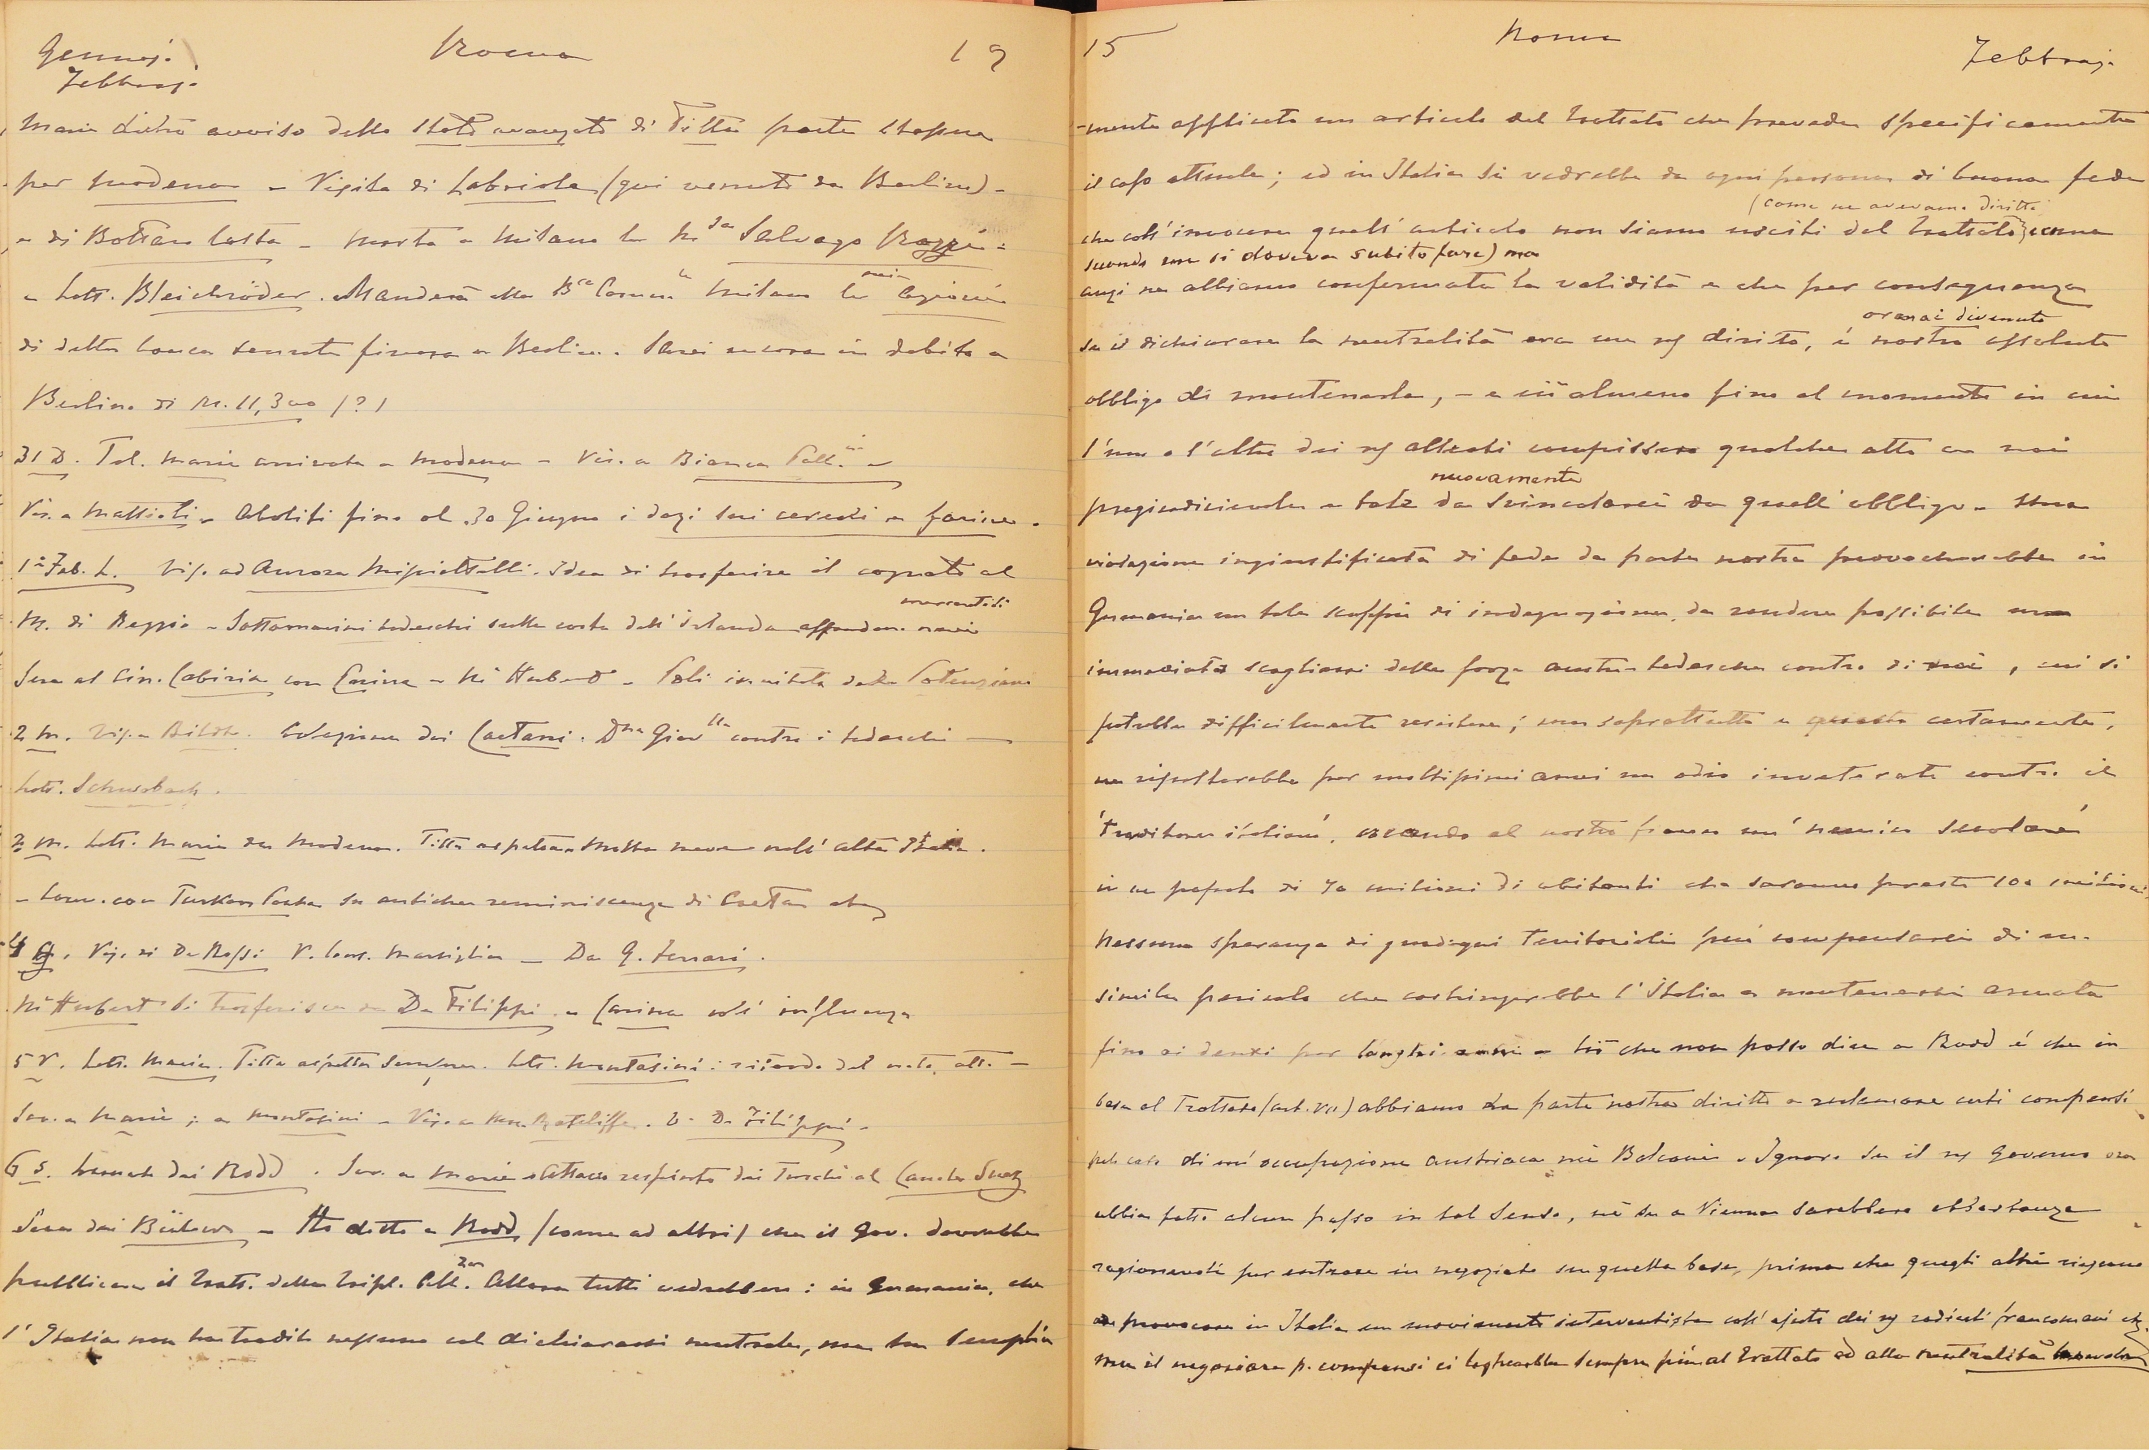 Gennaj. Roma 19
Febbraj.
Maria dietro avviso dello stato avanzato di Titta parte stassera
per Modena - Visita di Labriola (qui venuto da Berlino) -
e di Bottaro Costa - Morta a Milano la M.sa Salvago Raggi -
a Lett. Bleichröder. Manderà alla B.ca Comm.le Milano le mie azioni
di detta banca tenute finora a Berlino. Sarei ancora in debito a
Berlino di M. 11,300 (?)
31 D. Tel. Maria arrivata a Modena - Vis. a Bianca
Vis. a Mattioli - Aboliti fino al 30 Giugno i dazi sui cereali e farine.
1° Feb. L. Vis. ad Aurora Misciattelli. Idea di trasferire il cognato al
M. di Reggio - Sottomarini tedeschi sulle coste dell'Irlanda affondano navi mercantili
Sera al Cin. Cabiria con Carina - Mr Herbert - Poli invitato dalle
2 M. Vis. a Bildt. Colazione dai Caetani. D.na Giov.lla contro i tedeschi -
Lett. Schwabach.
3 M. Lett. Maria da Modena. Titta aspetta - Molta neve nell'alta Italia.
- Conv. con Turkan Pascha su antiche reminiscenze di Creta etc
4 G. Vis. di De Rossi V. Cons. Marsiglia - Da G. Ferrari.
Mr Herbert si trasferisce da De Filippi - Carina coll'influenza
5 V. Lett. Maria. Titta aspetta sempre. Lett. Montasini: ricordo del
Scr. a Maria; a Montasini - Vis. a Mrs Ratcliffe. V. De Filippi -
6 S. Lunch dai Rodd. Scr. a Maria - Attacco respinto dai Turchi al Canale Suez
Sera dai Bülow - Ho detto a Rodd, (come ad altri) che il Gov. dovrebbe
pubblicare il Tratt. della Tripl. All.za Allora tutti vedrebbero: in Germania, che
l'Italia non ha tradito nessuno col dichiararsi neutrale, ma ha semplice
15 Roma Febbraj.
-mente applicato un articolo del trattato che prevede specificamente
il caso attuale; ed in Italia si vedrebbe da ogni persona di buona fede
che coll'invocare quell'articolo non siamo usciti dal trattato (come ne avevamo diritto
secondo me si doveva subito fare) ma
anzi ne abbiamo confermata la validità e che per conseguenza
se il dichiarare la neutralità era un ns diritto, è oramai divenuto nostro assoluto
obbligo di mantenerla, - e ciò almeno fino al momento in cui
l'uno o l'altro dei ns alleati compissero qualche atto a noi
pregiudicievole e tale da svincolarci nuovamente da quell'obbligo - Una
violazione ingiustificata di fede da parte nostra provocherebbe in
Germania un tale scoppio di indegnazione, da rendere possibile uno
immediato scagliarsi delle forze austro-tedesche contro di noi, cui si
potrebbe difficilmente resistere; ma soprattutto e questo certamente,
ne risulterebbe per moltissimi anni un odio inveterato contro il
'traditore italiano', creando al nostro fianco un nemico secolare
in un popolo di 70 milioni di abitanti che saranno presto 100 milioni.
Nessuna speranza di guadagni territoriali può compensarci di un
simile pericolo che costringerebbe l'Italia a mantenersi armata
fino ai denti per lunghi anni - Ciò che non posso dire a Rodd è che in
base al Trattato (art. VII) abbiamo da parte nostra diritto a reclamare certi compensi
pel caso di un'occupazione austriaca nei Balcani - Ignoro se il ns governo ora
abbia fatto alcun passo in tal senso, nè se a Vienna sarebbero abbastanza
ragionevoli per entrare in negoziato su quella base, prima che quegli altri riescano
a provocare in Italia un movimento interventista coll'ajuto dei ns radicali francomani etc.
Ma il negoziare p. compensi ci legherebbe sempre più al trattato ed alla neutralità